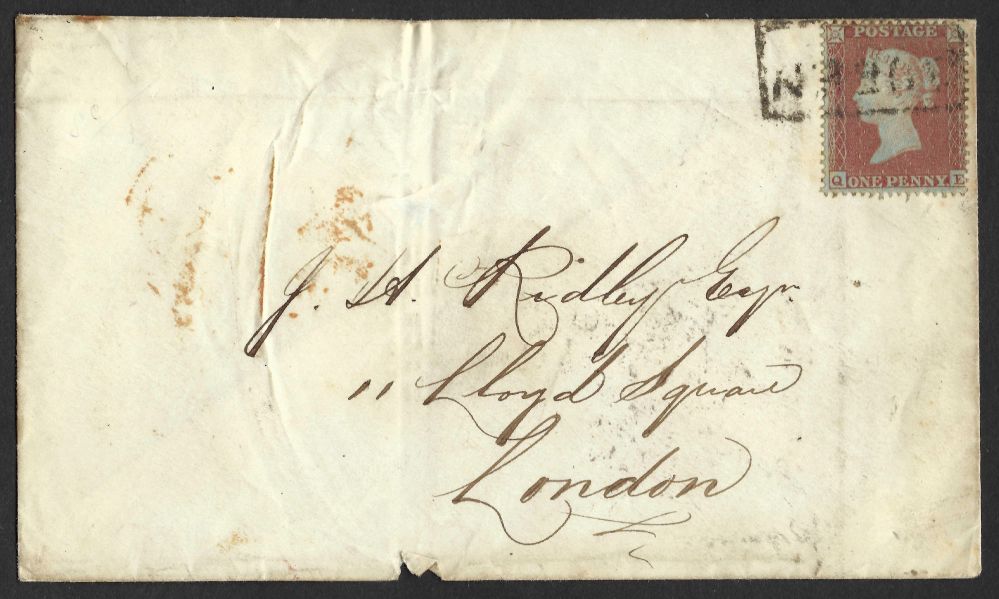 POSTAGE
Q ONE PENNY E
J. H. Ridley Esqr.
11 Lloyd Square
London